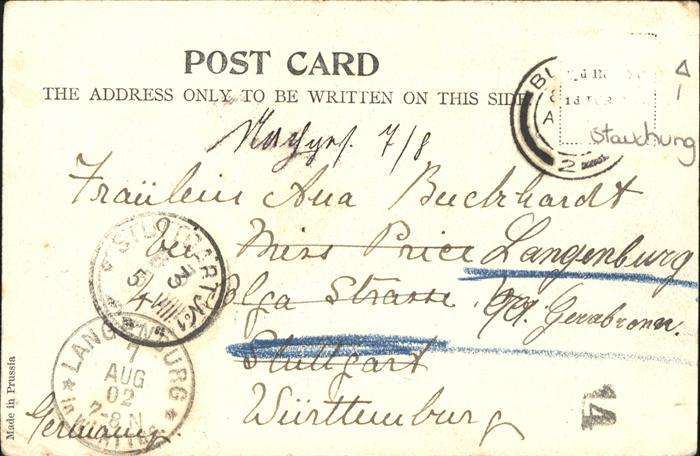 POST CARD
THE ADDRESS ONLY TO BE WRITTEN ON THIS SIDE
BU
2
Stauchung
Nachges. 7/8
Fräulein Ana Buckhardt
bei Miss Price Langenburg
Olga Strasse O/A. Gerabronn.
Stuttgart
Württemburg
Germany
STUTTGART No1
3 VIII
5/4
LANGENBURG
7
AUG
02
2-8 N
14
Made in Prussia